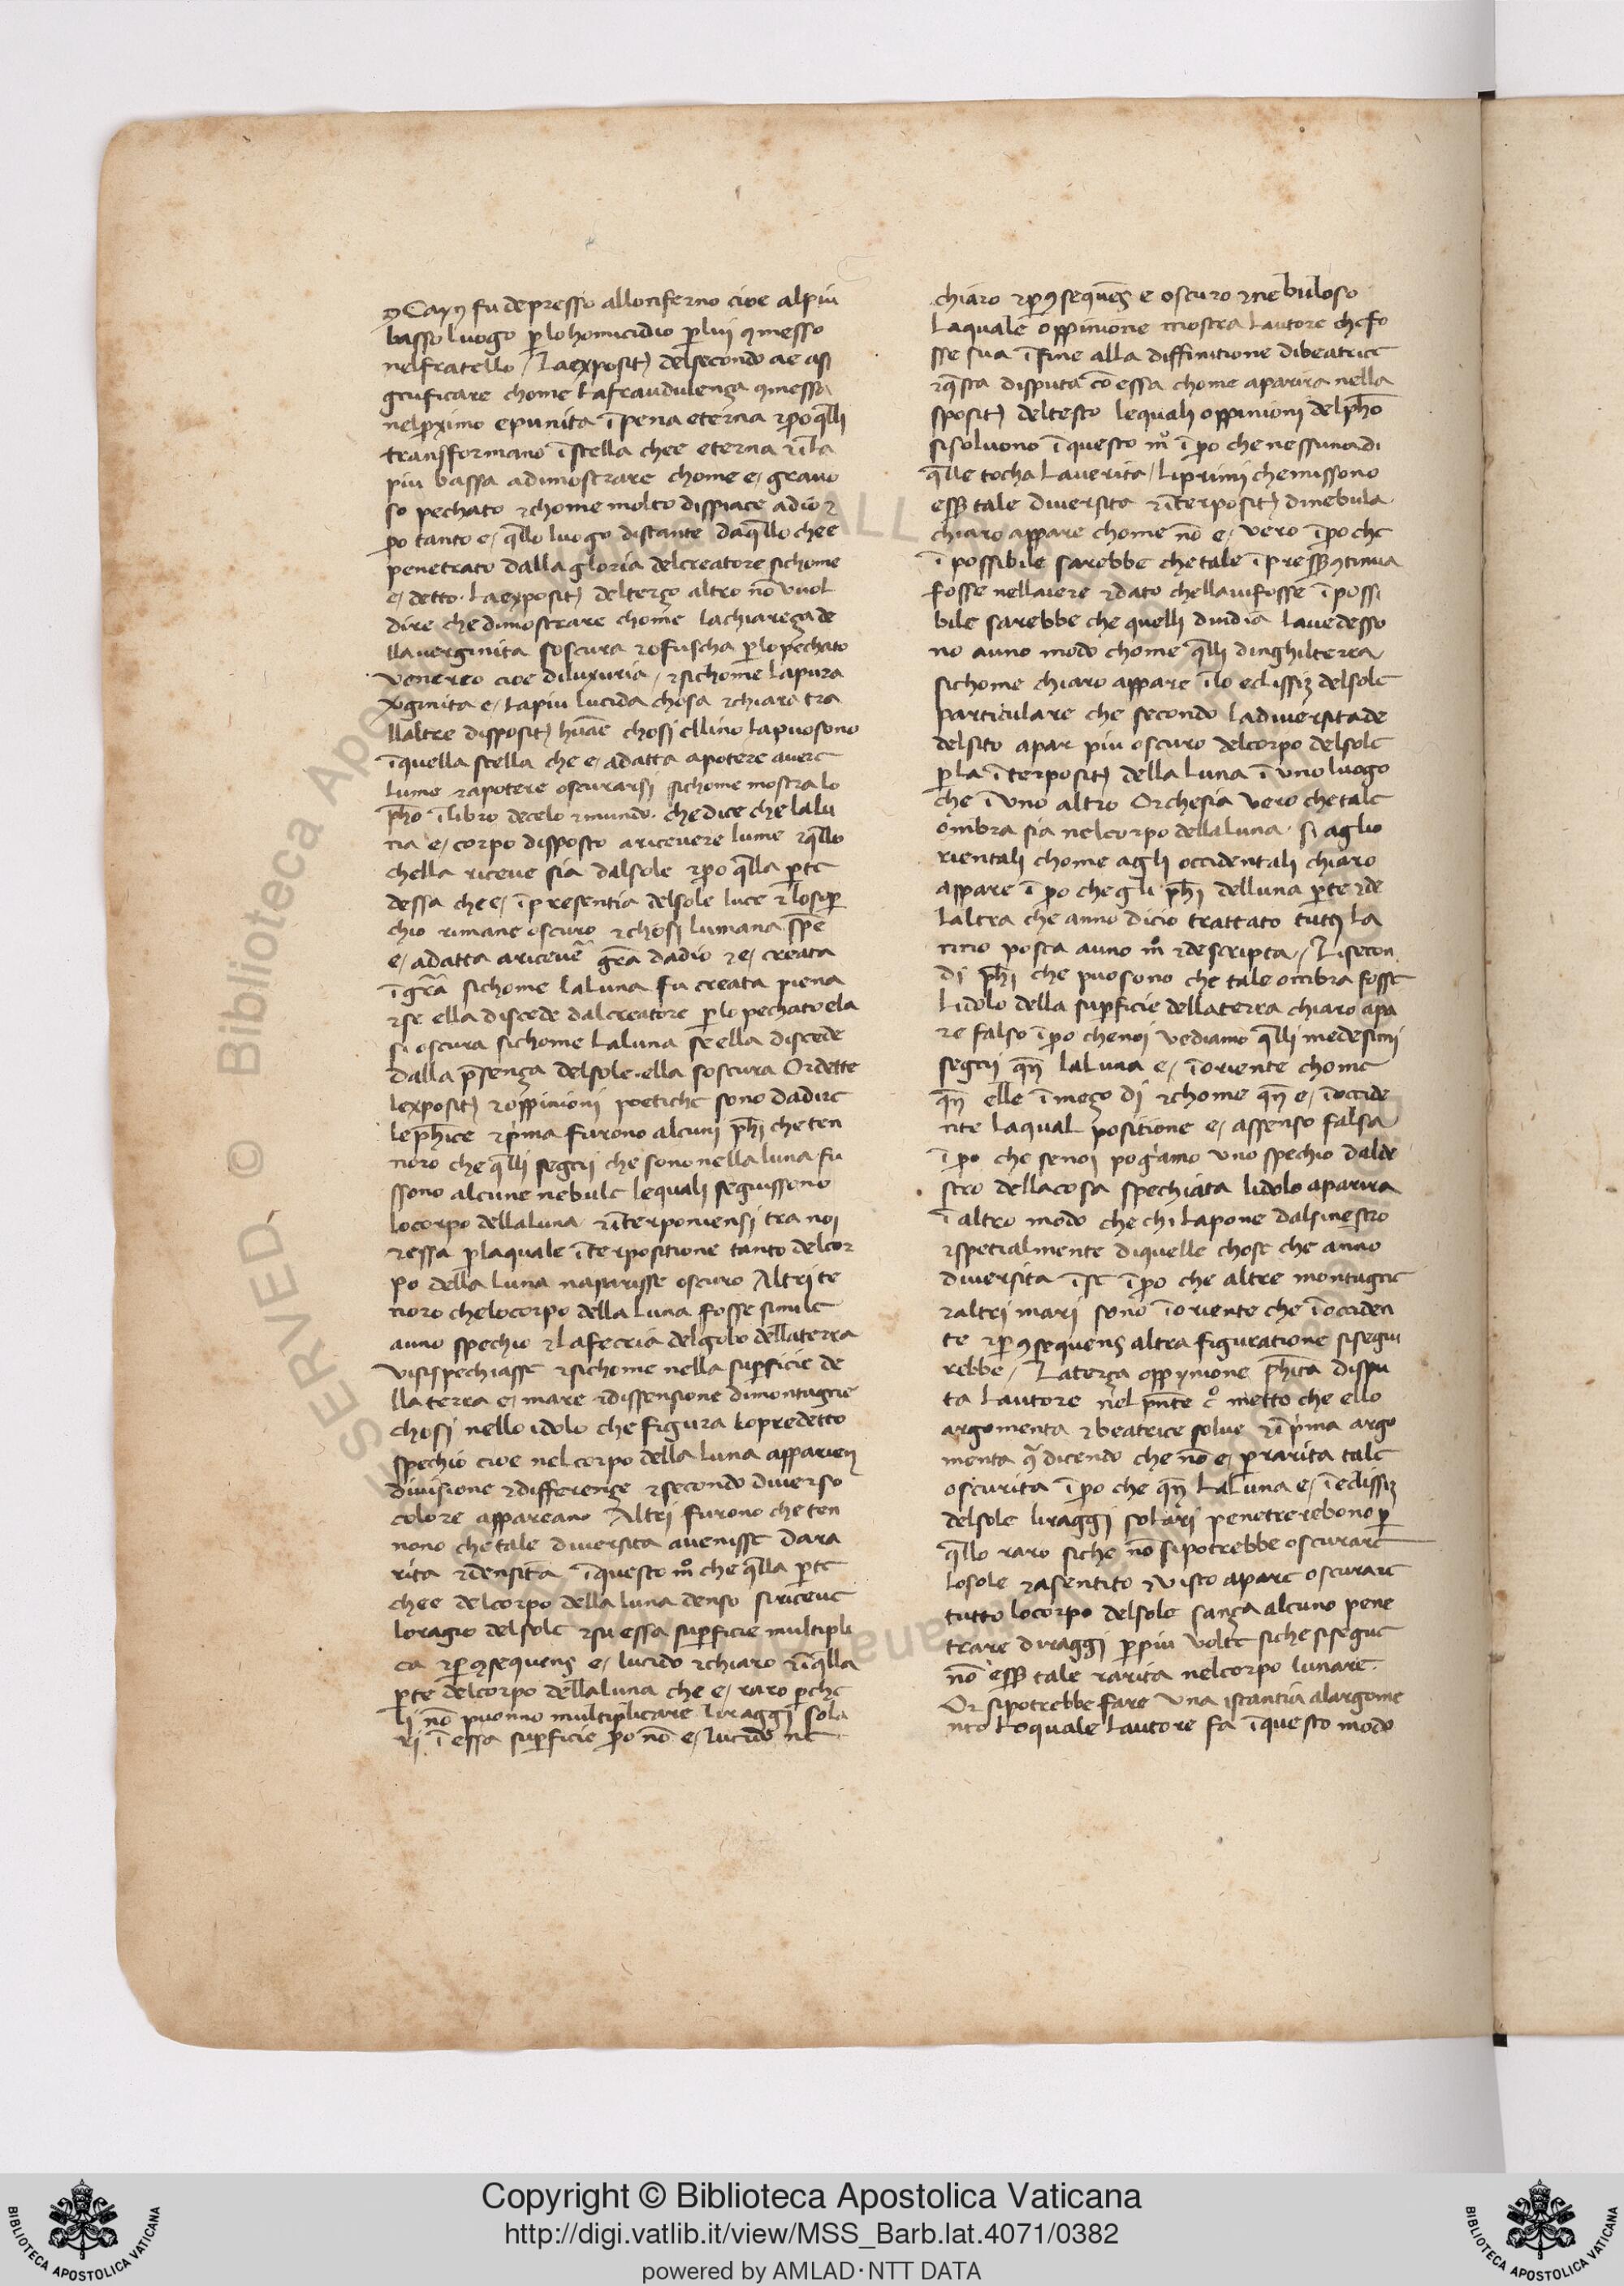 Cayn fu depresso alloniferno cioe alpiu
basso luogo p̄ lo homicidio p̄ lui ꝯmesso
nelfratello / Laexposit̄ delsecondo ae asi
gnificare chome Lafraudulenza ꝯmessa
nelp̄ximo epunita ī pena eterna ⁊ p̄o q̄lli
transformano ī stella chee eterna ⁊ ī la
piu bassa adimostrare chome e / gravo
so pechato ⁊ chome molto dispiace adio ⁊
p̄o tanto e / q̄llo luogo distante da q̄llo chee
penetrato dalla gloria delcreatore sichome
e / detto . Laexposit̄ delterzo altro nō vuol
dire che dimostrare chome lachiareza de
lla verginita soscura ⁊ ofuscha p̄ lo pechato
venereo cioe diluxuria / ⁊ sichome lapura
v̄ginita e / lapiu lucida chosa ⁊ chiara tra
llaltre disposit̄ hūāe chosi ellino lapuosono
ī quella stella che e / adatta apotere avere
lume ⁊ apotere oscurarsi sichome mostra lo
ph̄o ī libro decelo ⁊ mundo . che dice che lalu
na e / corpo disposto aricevere lume ⁊ q̄llo
chella riceve sia dalsole ⁊ p̄o q̄lla p̄te
dessa che e / ī presentia delsole luce ⁊ lo sop̄
chio rimane oscuro ⁊ chosi lumana sp̄e
e / adatta aricev̄e gr̄a dadio ⁊ e / creata
ī gr̄a sichome laluna fu creata piena
⁊ se ella discede dalcreatore p̄ lo pechato ela
si oscura sichome Laluna se ella discede
dalla p̄senza delsole . ella soscura Ordette
lexposit̄ ⁊ oppinioni poetiche sono dadire
le ph̄ice ⁊ p̄ma furono alcuni ph̄i che ten
noro che q̄lli segni che sono nella luna fu
ssono alcune nebule lequali seguissono
locorpo dellaluna ⁊ īterponiensi tra noi
⁊ essa p̄ laquale īterpositione tanto delcor
po della luna naparisse oscuro Altri te
noro chelocorpo della Luna fosse simile
auno spechio ⁊ Lafecria delgolo dellaterra
visispechiasse ⁊ sichome nella sup̄ficie de
lla terra e / mare ⁊ dissensione dimontagne
chosi nello idolo che figura lopredetto
spechio cioe nel corpo della luna apparien
divisione ⁊ differenze ⁊ secondo diverso
colore appareano Altri furono che ten
nono che tale diversita avenisse dara
rita ⁊ densita ī questo m̊ che q̄lla p̄te
chee delcorpo della luna denso siriceve
loragio delsole ⁊ su essa sup̄ficie multipli
ca ⁊ p̄ ꝯsequens e / lucido ⁊ chiaro ⁊ ī q̄lla
p̄te delcorpo dellaluna che e / raro p̄che
li nō puonno multiplicare liraggi sola
ri ī essa sup̄ficie p̄o nō e / lucido ne
chiaro ⁊ p̄ ꝯsequens e oscuro ⁊ nebuloso
Laquale oppinione mostra Lautore chefo
sse sua ī fine alla diffinitione dibeatrice
⁊ q̄sta disputa cō essa chome aparira nella
sposit̄ deltesto lequali oppinioni delph̄o
sisolvono ī questo m̊ ī p̄o che nessuna di
q̄lle tocha Laverita / Liprimi chemissono
ess̄ tale diversita ⁊ īterposit̄ dinebula
chiaro appare chome nō e / vero ī p̄o che
ī possibile sarebbe che tale ī press̄ ꝯtinua
fosse nellaiere ⁊ dato chellavifosse ī possi
bile sarebbe che quelli dindia lavedesso
no auno modo chome q̄lli dinghilterra
sichome chiaro appare ī lo eclissiz delsole
particulare che secondo ladiversitade
delsito apar piu oscuro delcorpo delsole
p̄ la īterposit̄ della Luna ī uno luogo
che ī uno altro Orchesia vero chetale
ombra sia nelcorpo dellaluna . si aglio
rientali chome agli occidentali chiaro
appare ī p̄o che gli ph̄i delluna p̄te ⁊ de
Laltra che anno dicio trattato tutti La
nno posta auno m̊ ⁊ descripta / Lisecon
di ph̄i che puosono che tale ombra fosse
Lidolo della sup̄ficie dellaterra chiaro apa
re falso ī p̄o chenoi vediamo q̄lli medesimi
segni qn̄ laluna e / ī oriente chome
qn̄ elle ī mezo di ⁊ chome qn̄ e / ī occide
nte laqual positione e / assenso falsa
ī p̄o che senoi pogamo uno spechio dalde
stro dellacosa spechiata lidolo aparira
ī altro modo che chi lapone dalsinestro
⁊ spetialmente diquelle chose che anno
diversita ī se ī p̄o che altre montagne
⁊ altri mari sono ī oriente che ī occiden
te ⁊ p̄ ꝯsequens altra figuratione sisegui
rebbe / Laterza oppynione ph̄ica dispu
ta Lautore nel pn̄te c̊ metto che ello
argomenta ⁊ beatrice solve ⁊ ī p̄ma argo
menta q̄ dicendo che nō e / p̄ rarita tale
oscurita ī p̄o che qn̄ LaLuna e / ī eclissiz
delsole liraggi solari penetrerebono p̄
q̄llo raro siche nō sipotrebbe oscurare
losole ⁊ asentito ⁊ visto apare oscurare
tutto locorpo delsole sanza alcuno pene
trare diraggi p̄ piu volte siche sisegue
nō ess̄ tale rarita nelcorpo lunare .
Or sipotrebbe fare una istantia alargome
nto Loquale Lautore fa ī questo modo
Copyright © Biblioteca Apostolica Vaticana
http://digi.vatlib.it/view/MSS_Barb.lat.4071/0382
powered by AMLAD·NTT DATA